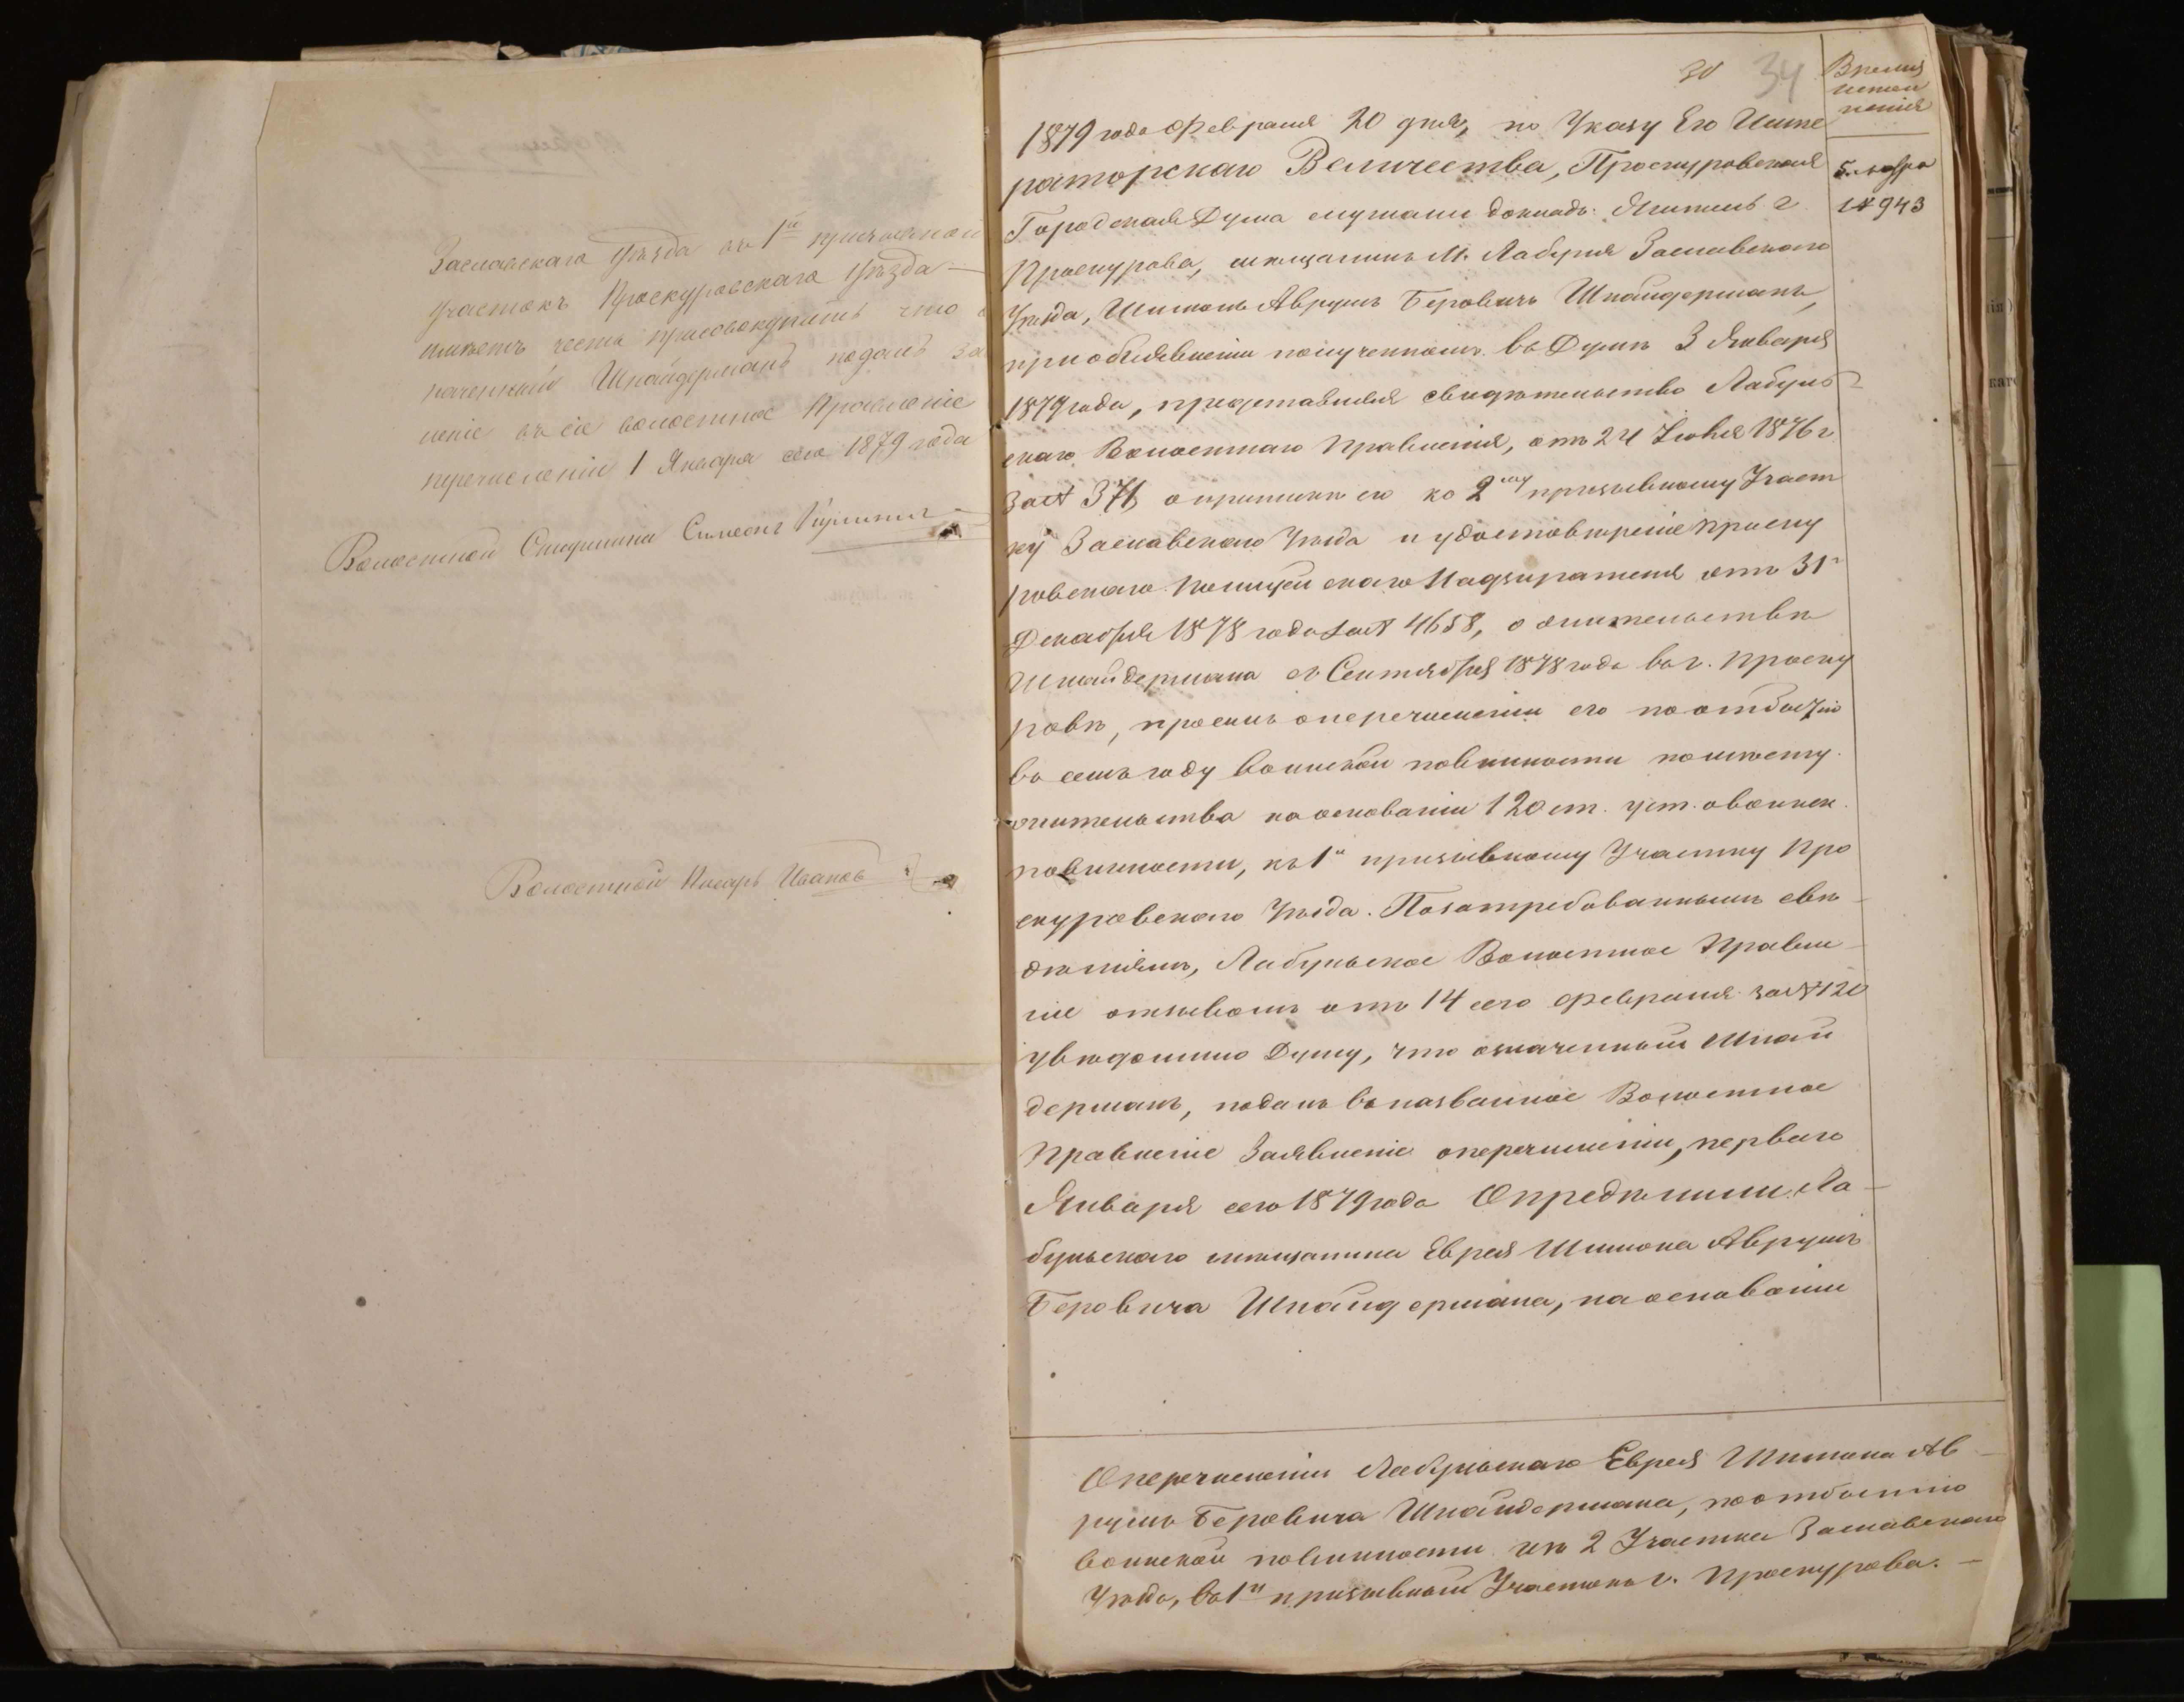 Заславскаго Уѣзда въ 1й призывной
участокъ Проскуровскаго Уѣзда —
имѣетъ честь присовокупить что
наченный Шнайдерманъ подалъ за
леніе въ сіе волостное Правленіе
перечисленіи 1 Января сего 1879 года
Волостной Старшина Симеонъ
Волостной Писарь Ивановъ
30 34
Время
испол
ненія
5 марта
№ 943
1879 года Февраля 20 дня, по Указу Его Импе
раторскаго Величества, Проскуровская
Городская Дума слушали докладъ: Житель г.
Проскурова, мѣщанинъ М. Лабуня Заславскаго
Уѣзда, Шимонъ Аврумъ Беровичъ Шнайдерманъ,
при объявленіи полученномъ въ Думѣ 3 Января
1879 года, представляя свидѣтельство Лабунь
скаго Волостнаго Правленія, отъ 24 Іюля 1876 г.
за № 371, о припискѣ его ко 2му призывному Участ
ку Заславскаго Уѣзда и удостовѣреніе Проску
ровскаго Полицейскаго Надзирателя отъ 31
Декабря 1878 года за № 4658, о жительствѣ
Шнайдермана съ Сентября 1878 года въ г. Проску
ровѣ, просилъ о перечисленіи его по отбытію
въ семъ году воинской повинности по мѣсту
жительства на основаніи 120 ст. уст. о воинск.
повинности, къ 1й призывному Участку Про
скуровскаго Уѣзда. По затребованнымъ свѣ
дѣніямъ, Лабуньское Волостное Правле
ніе отзывомъ отъ 14 сего Февраля за № 120
увѣдомило Думу, что означенный Шнай
дерманъ, подалъ въ названное Волостное
Правленіе Заявленіе о перечисленіи, перваго
Января сего 1879 года Опредѣлили: Ла
буньскаго мѣщанина Еврея Шимона Аврумъ
Беровича Шнайдермана, на основаніи
О перечисленіи Лабуньскаго Еврея Шимона Ав
румъ Беровича Шнайдермана, по отбытію
воинской повинности изъ 2 Участка Заславскаго
Уѣзда, въ 1й призывный Участокъ г. Проскурова. —